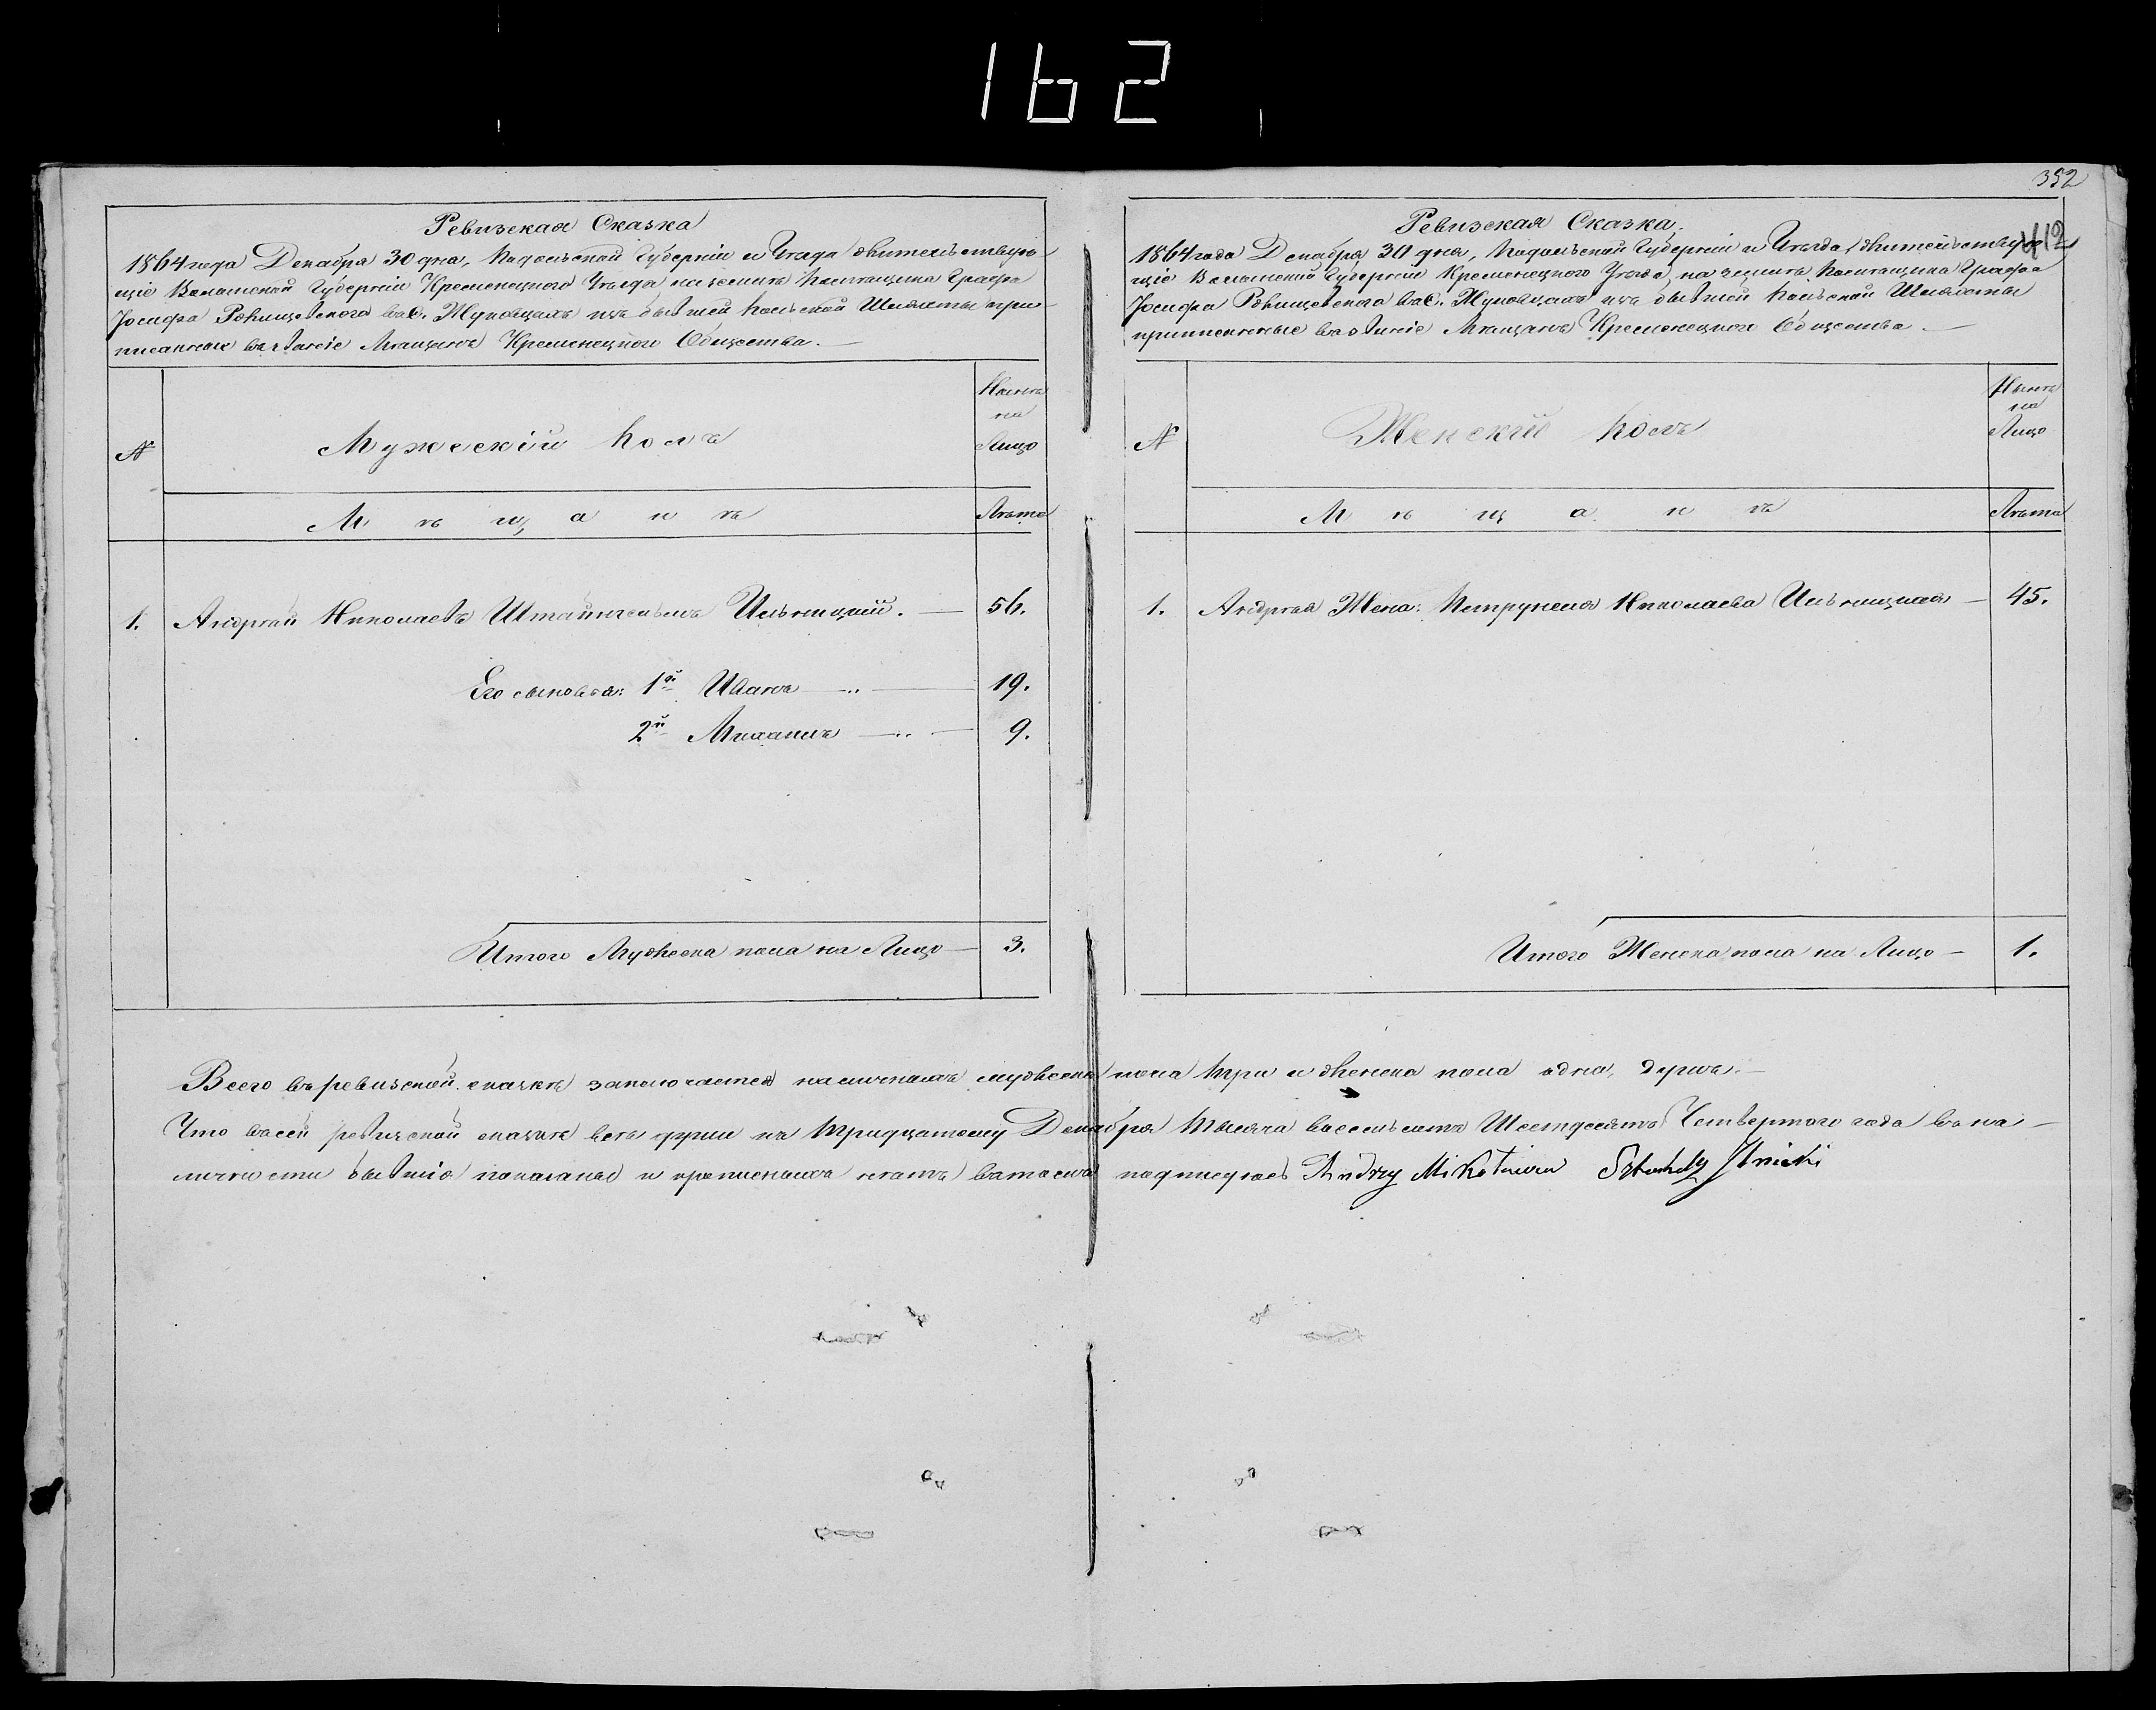 162
352
412
Ревизская Сказка
1864 года Декабря 30 дня, Подольской Губерніи и Уѣзда жительствую-
щіе Волынской Губерніи Кременецкого Уѣзда на землѣ Помѣщика Графа
Іосифа Ржищевского въ с. Жуковцахъ изъ бывшей Польской Шляхты при-
писанные въ званіе Мѣщанъ Кременецкого Общества.
№
Мужескій Полъ
Нынѣ
на
Лицо
Мѣщанъ
Лѣта
1. Андрей Николаевъ Ильницкій. 56.
Его сыновья: 1й Иванъ 19.
2й Михаилъ 9.
Итого Мужеска пола на Лицо 3.
Ревизская Сказка.
1864 года Декабря 30 дня, Подольской Губерніи и Уѣзда жительствую-
щіе Волынской Губерніи Кременецкого Уѣзда, на землѣ Помѣщика Графа
Іосифа Ржищевского въ с. Жуковцахъ изъ бывшей Польской Шляхты
приписанные въ званіе Мѣщанъ Кременецкого Общества.
№
Женскій Полъ
Нынѣ
на
Лицо
Мѣщанъ
Лѣта
1. Андрея Жена: Петрунеля Николаева Ильницкая 45.
Итого Женска пола на Лицо 1.
Всего въ ревизской сказкѣ заключается наличныхъ мужеска пола три и женска пола одна, душъ.
Что въ сей ревизской сказкѣ всѣ души къ тридцатому Декабря тысяча восемьсотъ Шестьдесятъ Четвертого года въ на-
личности бывшіе показаны и прописныхъ нѣтъ въ томъ подписуюсь Andrzy Ilnicki